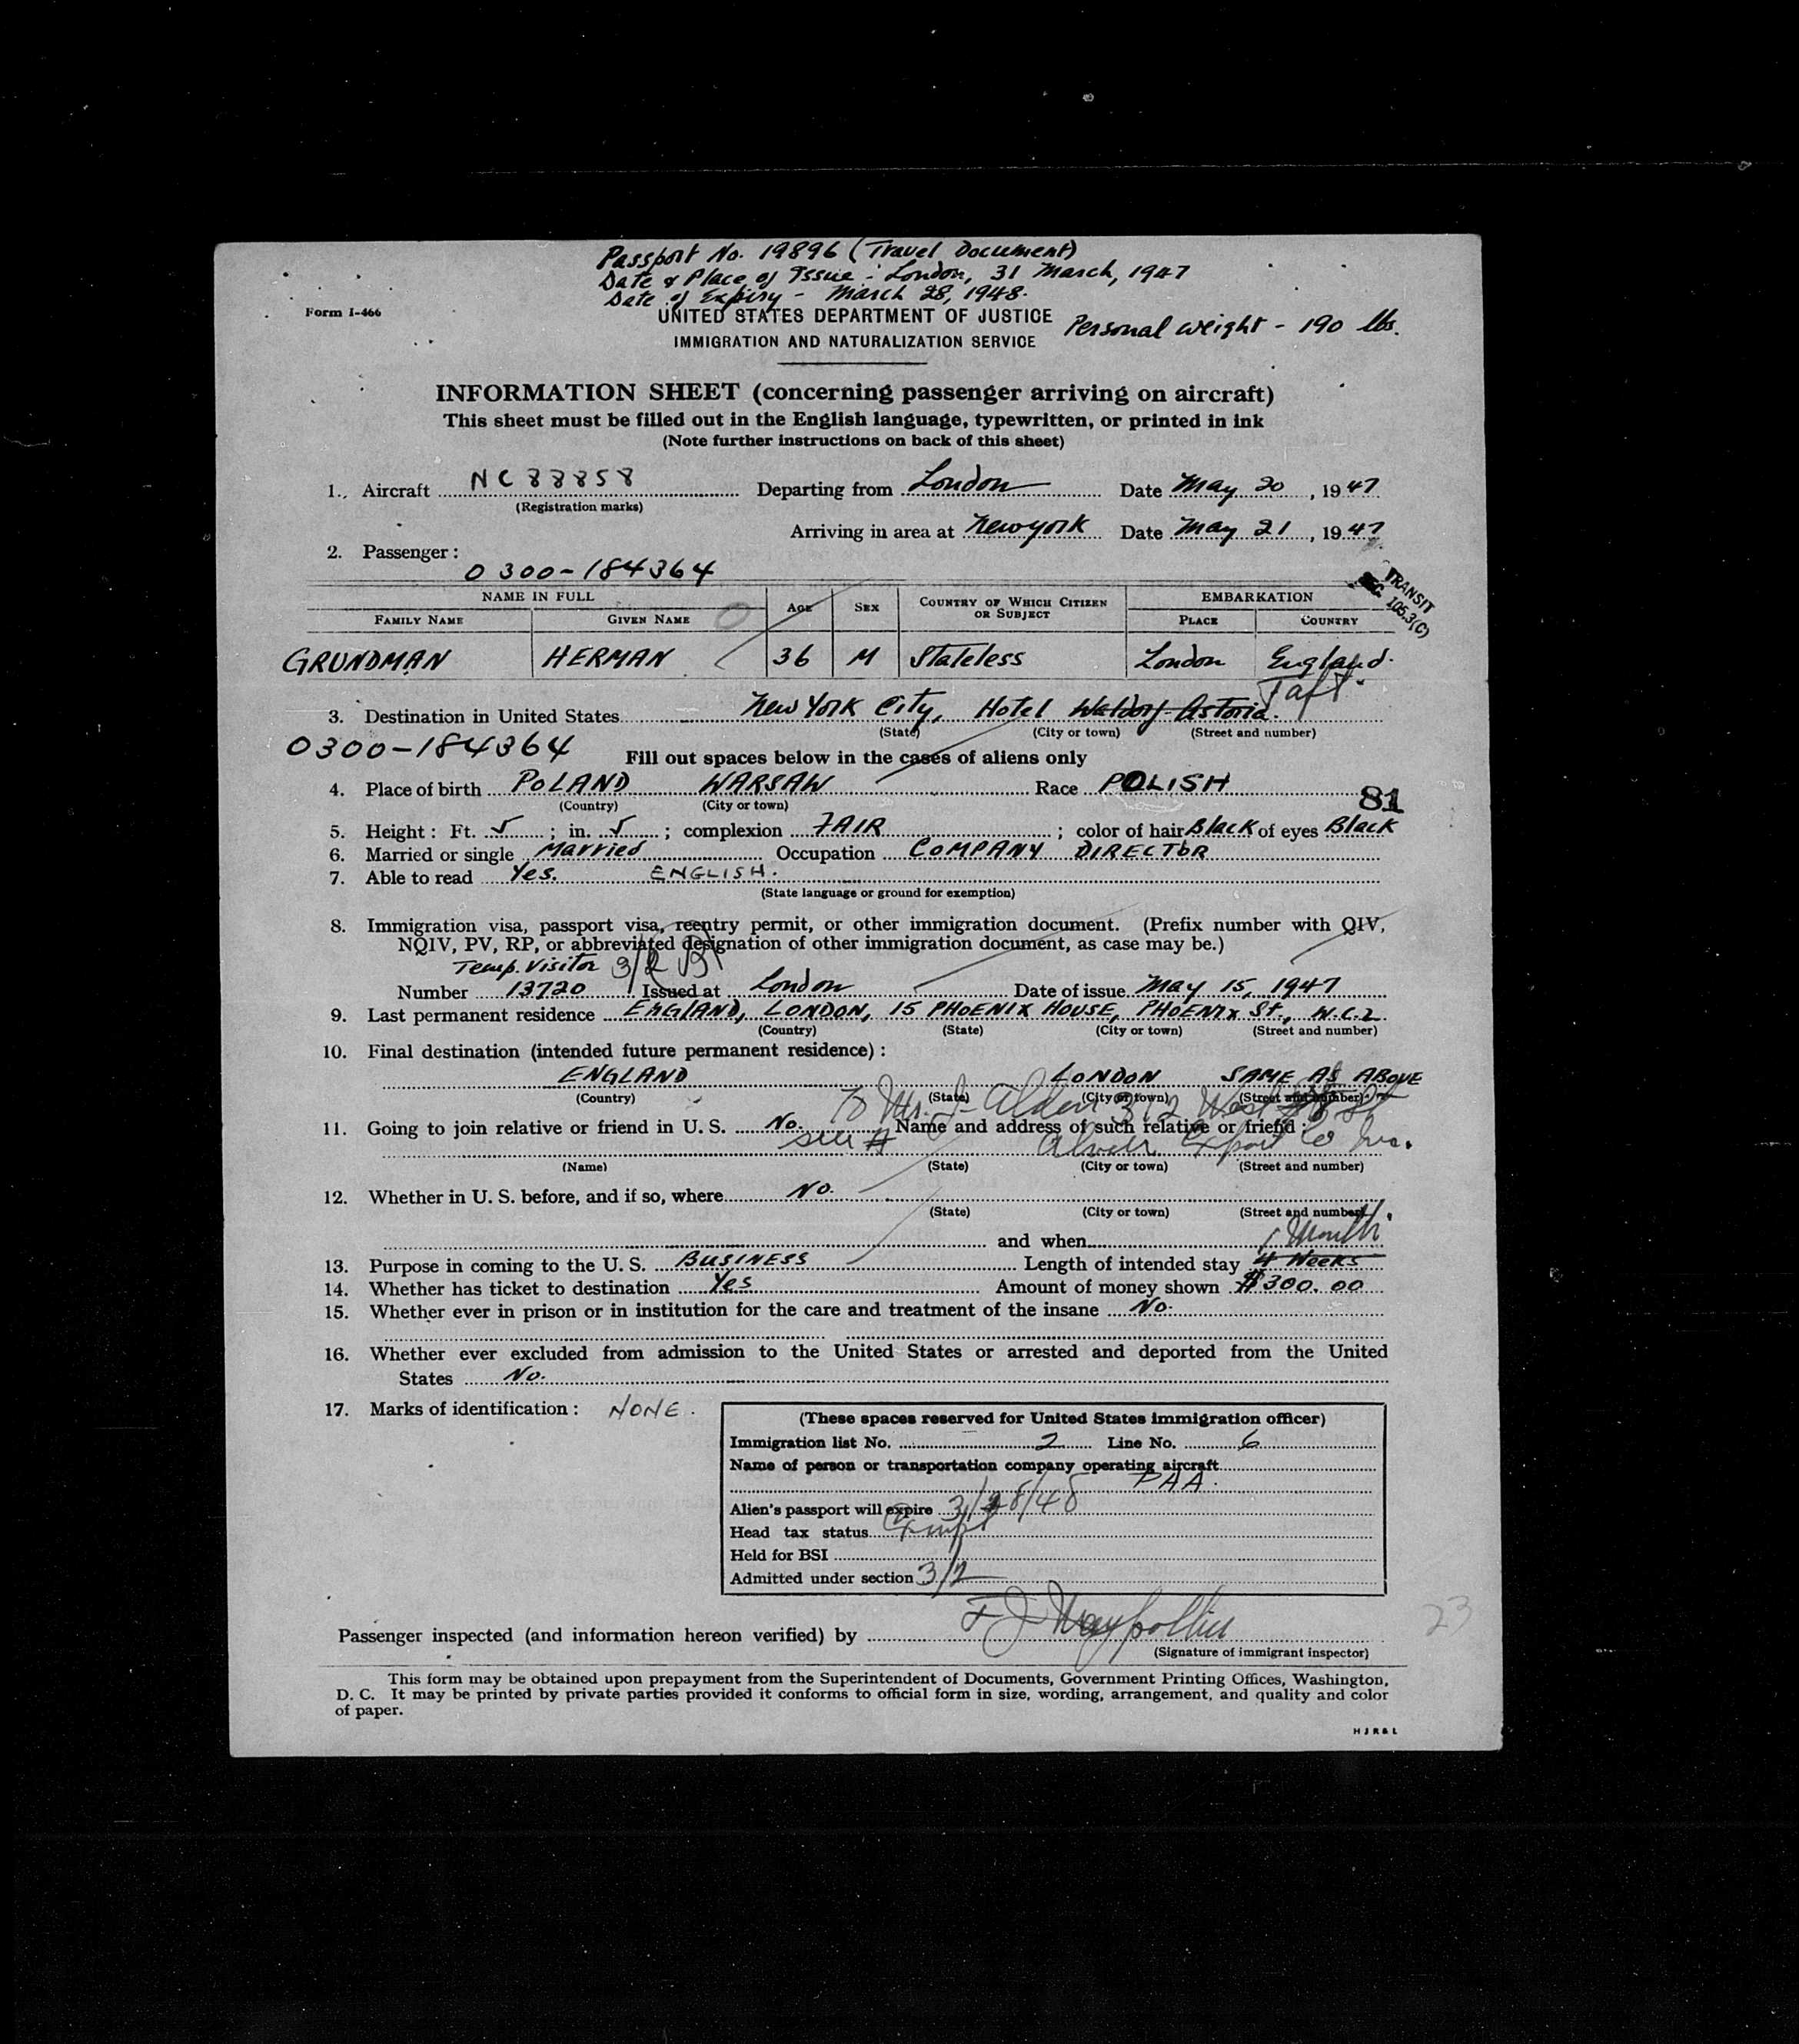 Passport No. 19896 (Travel Document)
Date & Place of Issue - London, 31 March, 1947
Date of Expiry - March 28, 1948.
Form I-466
UNITED STATES DEPARTMENT OF JUSTICE
Personal weight - 190 lbs.
IMMIGRATION AND NATURALIZATION SERVICE
INFORMATION SHEET (concerning passenger arriving on aircraft)
This sheet must be filled out in the English language, typewritten, or printed in ink
(Note further instructions on back of this sheet)
1. Aircraft NC88858 Departing from London Date May 20, 1947
(Registration marks)
Arriving in area at New york Date May 21, 1947
2. Passenger:
0300-184364
TRANSIT
SEC. 105.3(C)
NAME IN FULL AGE SEX COUNTRY OF WHICH CITIZEN OR SUBJECT EMBARKATION
FAMILY NAME GIVEN NAME PLACE COUNTRY
GRUNDMAN HERMAN 36 M Stateless London England.
Taft
3. Destination in United States New York City, Hotel Waldorf-Astoria.
(State) (City or town) (Street and number)
0300-184364
Fill out spaces below in the cases of aliens only
4. Place of birth POLAND WARSAW Race POLISH
(Country) (City or town)
81
5. Height: Ft. 5; in. 5; complexion FAIR; color of hair Black of eyes Black
6. Married or single Married Occupation COMPANY DIRECTOR
7. Able to read Yes. ENGLISH.
(State language or ground for exemption)
8. Immigration visa, passport visa, reentry permit, or other immigration document. (Prefix number with QIV,
NQIV, PV, RP, or abbreviated designation of other immigration document, as case may be.)
Temp. Visitor 3/2
Number 13720 Issued at London Date of issue May 15, 1947
9. Last permanent residence ENGLAND, LONDON, 15 PHOENIX HOUSE, PHOENIX St., W.C.2
(Country) (State) (City or town) (Street and number)
10. Final destination (intended future permanent residence):
ENGLAND LONDON SAME AS ABOVE
(Country) (State) (City or town) (Street and number)
To Mr. J. Alden 312 West St
11. Going to join relative or friend in U. S. No. Name and address of such relative or friend:
Export Co Inc.
(Name) (State) (City or town) (Street and number)
12. Whether in U. S. before, and if so, where No.
(State) (City or town) (Street and number)
and when
1 Month
13. Purpose in coming to the U. S. BUSINESS Length of intended stay 4 Weeks
14. Whether has ticket to destination Yes Amount of money shown $300.00
15. Whether ever in prison or in institution for the care and treatment of the insane No.
16. Whether ever excluded from admission to the United States or arrested and deported from the United
States No.
17. Marks of identification: NONE.
(These spaces reserved for United States immigration officer)
Immigration list No. 2 Line No. 6
Name of person or transportation company operating aircraft
PAA.
Alien's passport will expire 3/28/48
Head tax status Exempt
Held for BSI
Admitted under section 3/2
23
Passenger inspected (and information hereon verified) by
(Signature of immigrant inspector)
This form may be obtained upon prepayment from the Superintendent of Documents, Government Printing Offices, Washington,
D. C. It may be printed by private parties provided it conforms to official form in size, wording, arrangement, and quality and color
of paper.
HJR&L